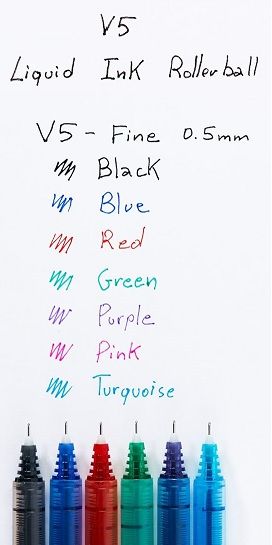 V5
Liquid Ink Rollerball
V5 - Fine 0.5mm
Black
Blue
Red
Green
Purple
Pink
Turquoise